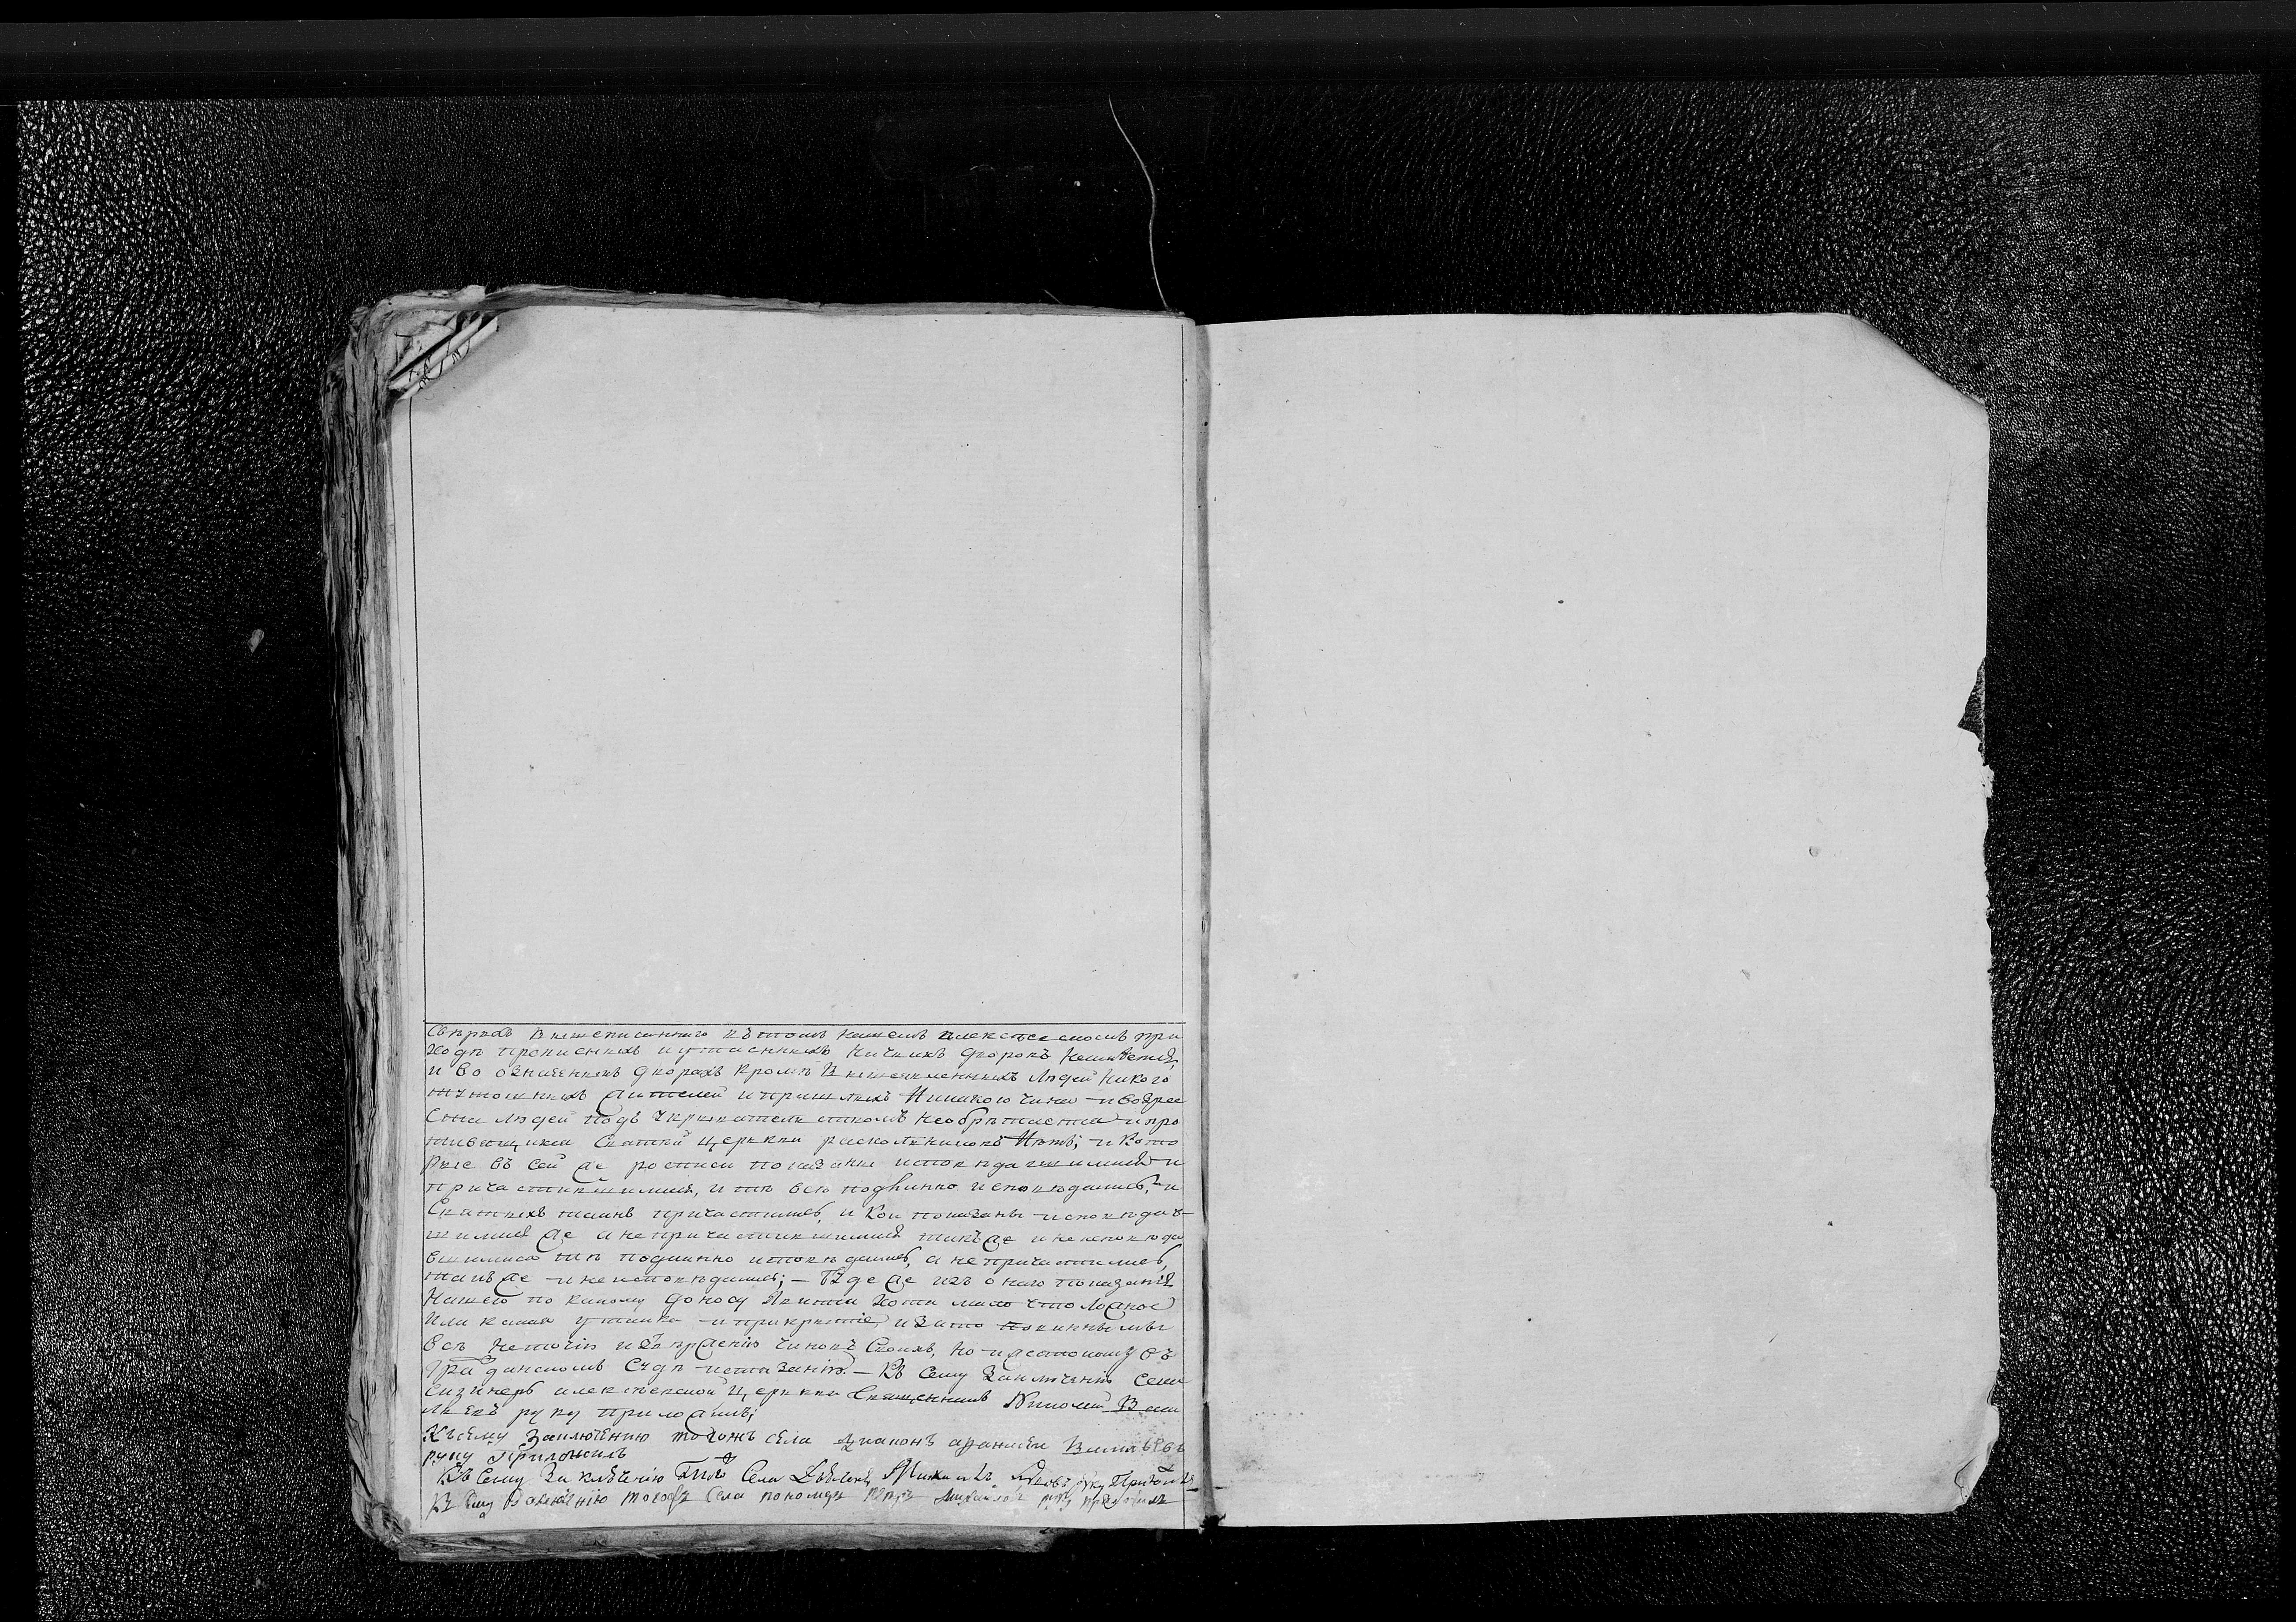 Сверхъ вышеписаннаго въ томъ нашемъ алексеевскомъ при
ходѣ прописныхъ и утаенныхъ ничьихъ дворовъ неимѣется,
и во означенныхъ дворахъ кромѣ вышеявленныхъ людей никого
тутошныхъ жителей и пришлыхъ никакого чина и возрас
ста людей подъ укрывательствомъ необрѣтается и про
тивящихся святей церкви раскольниковъ нѣтъ; и кото
рые въ сей же росписи показаны исповѣдавшимися и
причастившимися, и тѣ всѣ подлинно исповѣдались, и
святыхъ таинъ причастились, и кои показаны исповѣдав-
шимися же а непричастившимися такъже и неисповѣда
вшимися тѣ подлинно исповѣдались, а непричастились,
такъже и неисповѣдались; – Буде же изъ онаго показанія
нашего по какому доносу явится хотя мало что ложное
или какая утайка и прикрытіе, и за то повинны мы
все чиновъ своихъ, но и жестокому въ
гражданскомъ судѣ истязанію. – Къ сему заключенію села
алексеевской церкви священникъ Василь
евъ руку приложилъ;
Къ сему заключению тогожъ села диаконъ афанасеи васильевъ
руку приложилъ
Къ сему заключению тогожъ села руку приложилъ
К сему заключению тогожъ села пономарь Петръ михаиловъ руку приложилъ